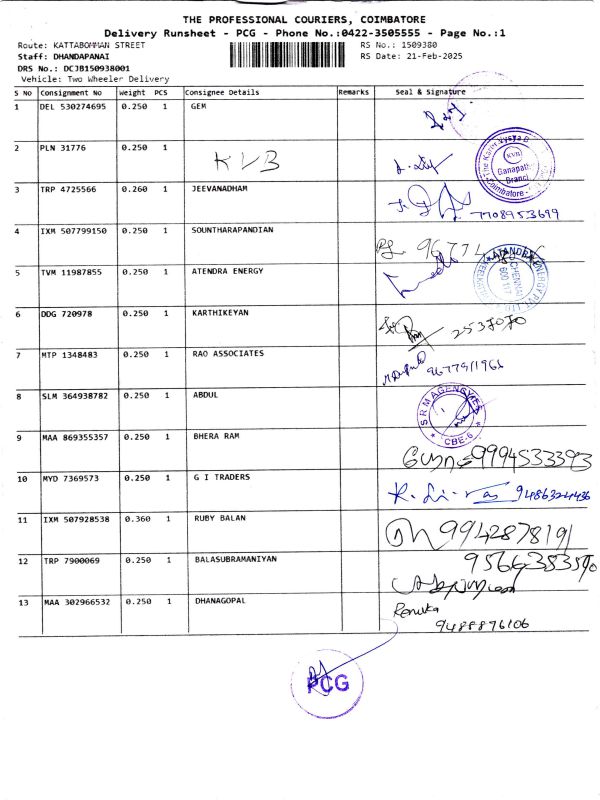 THE PROFESSIONAL COURIERS, COIMBATORE
Delivery Runsheet - PCG - Phone No.:0422-3505555 - Page No.:1
Route: KATTABOMMAN STREET RS No.: 1509380
Staff: DHANDAPANAI RS Date: 21-Feb-2025
DRS No.: DCJB150938001
Vehicle: Two Wheeler Delivery
S NO Consignment No Weight PCS Consignee Details Remarks Seal & Signature
1 DEL 530274695 0.250 1 GEM
2 PLN 31776 0.250 1 KVB
The Karur Vysya B
KVB
Ganapathy
Branch
Coimbatore
3 TRP 4725566 0.260 1 JEEVANADHAM
7708953699
4 IXM 507799150 0.250 1 SOUNTHARAPANDIAN
5 TVM 11987855 0.250 1 ATENDRA ENERGY
CHENNAI
600 117
6 DDG 720978 0.250 1 KARTHIKEYAN
7 MTP 1348483 0.250 1 RAO ASSOCIATES
8 SLM 364938782 0.250 1 ABDUL
SRM AGENCYIES
CBE-6
9 MAA 869355357 0.250 1 BHERA RAM
9994533393
10 MYD 7369573 0.250 1 G I TRADERS
9486324436
11 IXM 507928538 0.360 1 RUBY BALAN
9942878191
12 TRP 7900069 0.250 1 BALASUBRAMANIYAN
13 MAA 302966532 0.250 1 DHANAGOPAL
Renuka
9488876106
PCG